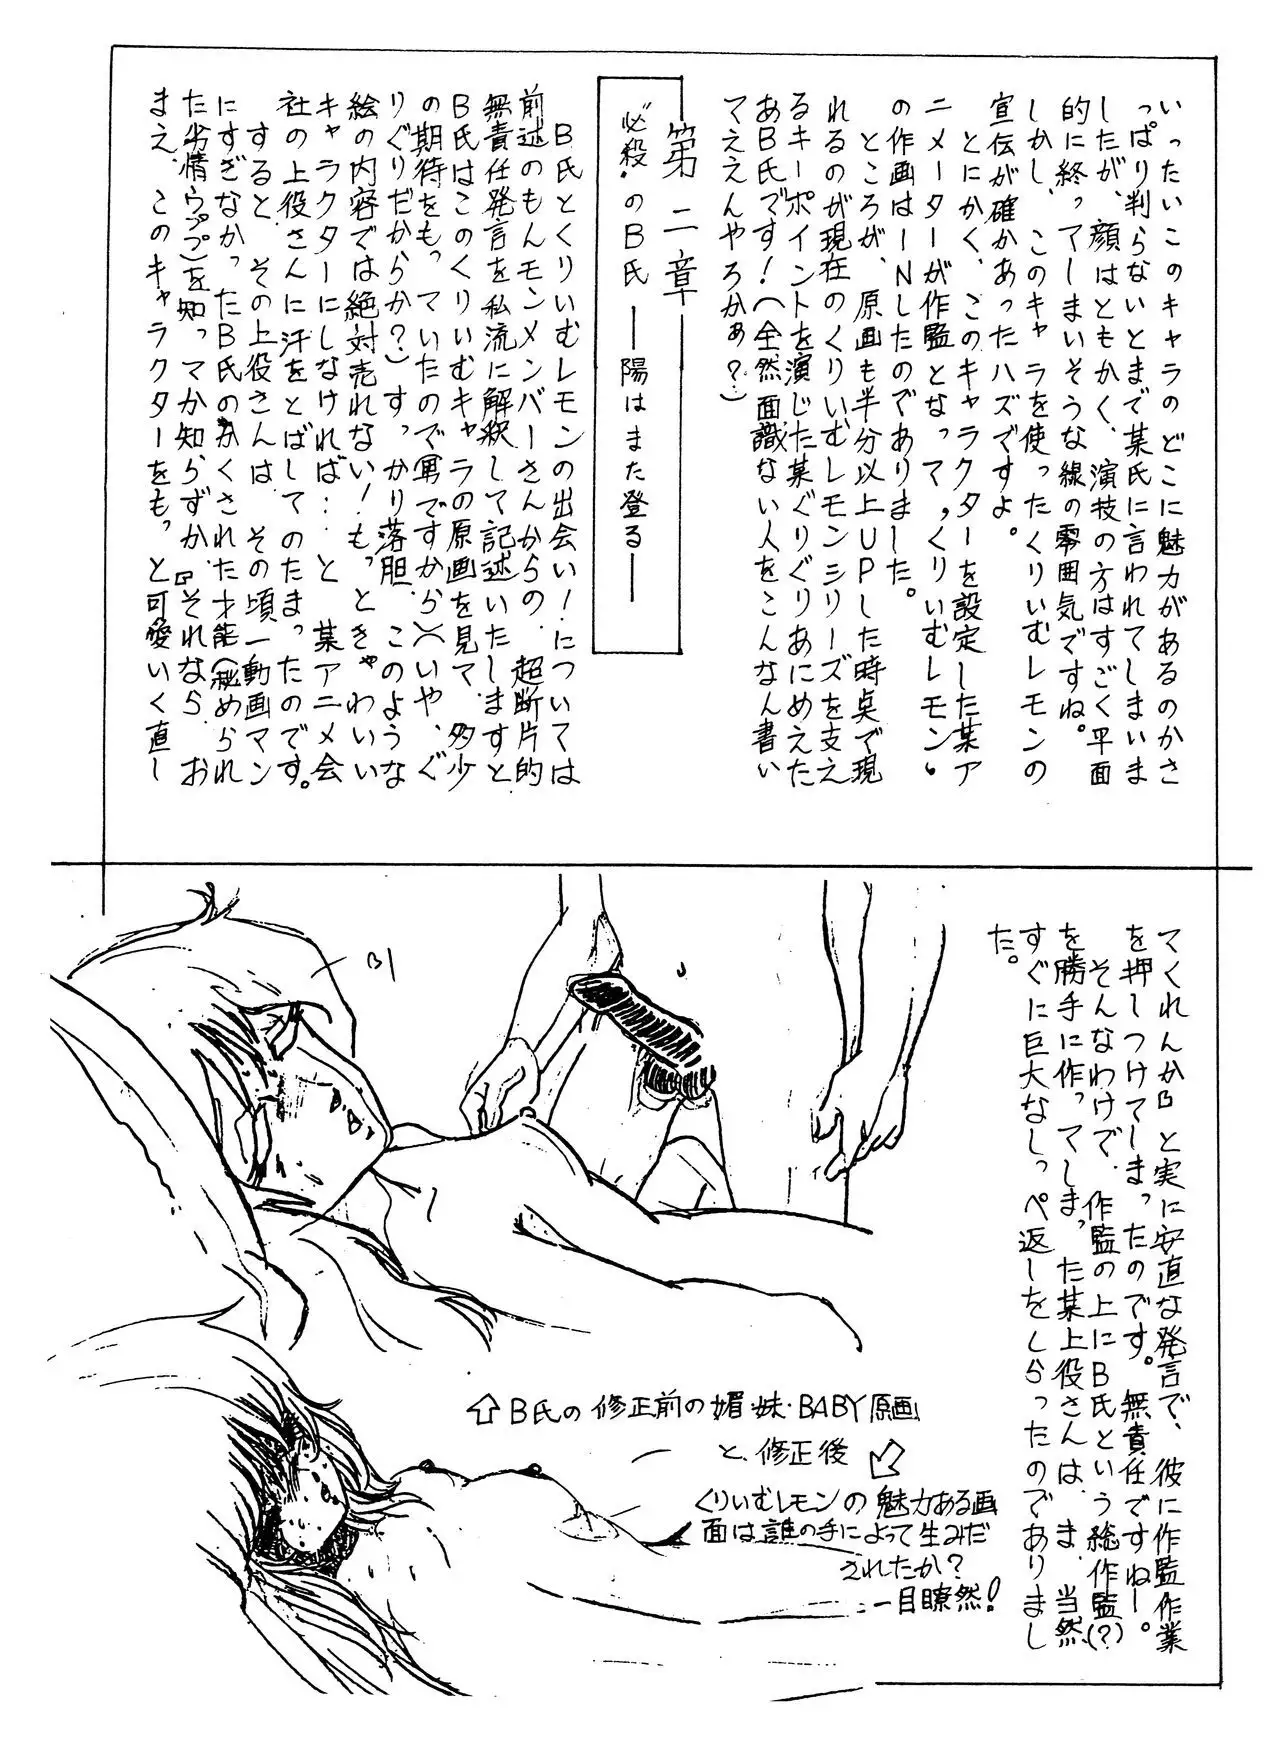 いったいこのキャラのどこに魅力があるのかさ
っぱり判らないとまで某氏に言われてしまいま
したが、顔はともかく、演技の方はすごく平面
的に終ってしまいそうな線の雰囲気ですね。
しかし、このキャラを使ったくりいむレモンの
宣伝が確かあったハズですよ。
とにかく、このキャラクターを設定した某ア
ニメーターが作監となって、"くりいむレモン"
の作画はINしたのでありました。
ところが、原画も半分以上UPした時点で現
れるのが現在のくりいむレモンシリーズを支え
るキーポイントを演じた某ぐりぐりあにめえた
あB氏です!(全然面識ない人をこんなん書い
てええんやろかぁ?)
第二章
"必殺"のB氏 ――陽はまた登る――
B氏とくりいむレモンの出会い!については
前述のもんモンメンバーさんからの、超断片的
無責任発言を私流に解釈して記述いたしますと
B氏はこのくりいむキャラの原画を見て、多少
の期待をもっていたので(男ですから)(いや、ぐ
りぐりだからか?)すっかり落胆、このような
絵の内容では絶対売れない!もっときゃわいい
キャラクターにしなければ…と、某アニメ会
社の上役さんに汗をとばしてのたまったのです。
すると、その上役さんは、その頃一動画マン
にすぎなかったB氏のかくされた才能(秘められ
た劣情ウププ)を知ってか知らずか『それなら、お
まえ、このキャラクターをもっと可愛いく直し
てくれんか』と実に安直な発言で、彼に作監作業
を押しつけてしまったのです。無責任ですねー。
そんなわけで、作監の上にB氏という総作監(?)
を勝手に作ってしまった某上役さんは、ま、当然、
すぐに巨大なしっぺ返しをくらったのでありまし
た。
B1
⇧B氏の修正前の媚・妹・BABY原画
と、修正後
くりいむレモンの魅力ある画
面は誰の手によって生みだ
されたか?
一目瞭然!